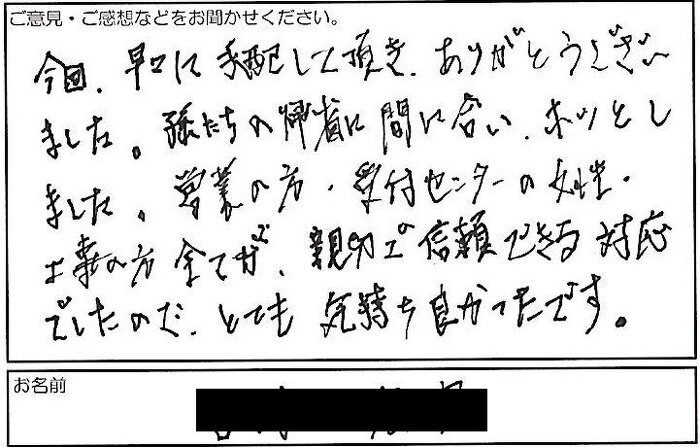 ご意見・ご感想などをお聞かせください。
今回、早々に手配して頂き、ありがとうござい
ました。孫たちの帰省に間に合い、ホッとし
ました。営業の方・受付センターの女性・
工事の方全てが、親切で信頼できる対応
でしたので、とても気持ち良かったです。
お名前